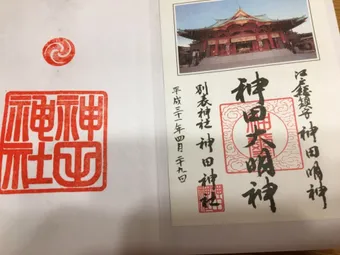 江戸総鎮守 神田明神
神田大明神
別表神社 神田神社
平成三十一年四月二十九日
神田
神社